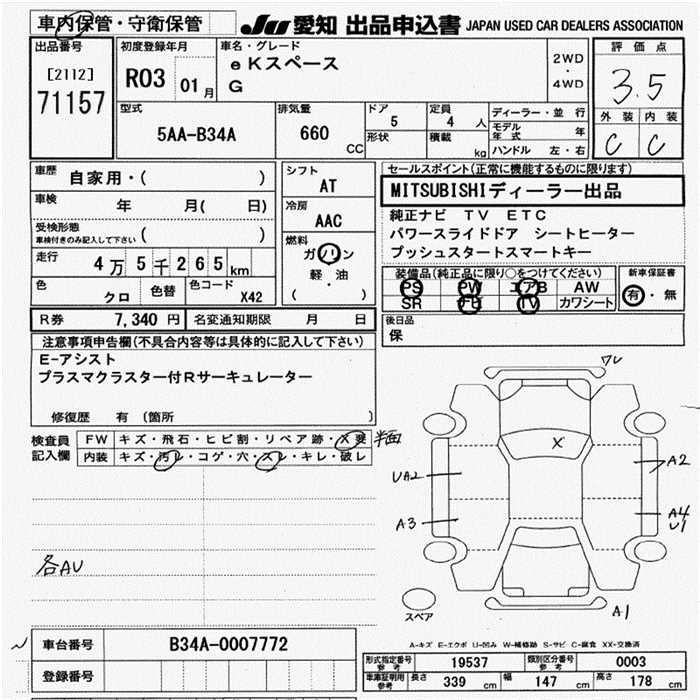 車内保管・守衛保管
JU 愛知 出品申込書 JAPAN USED CAR DEALERS ASSOCIATION
出品番号
[2112]
71157
初度登録年月
R03 01月
車名・グレード
eKスペース
G
2WD
・
4WD
評価点
3.5
外装 内装
C C
型式
5AA-B34A
排気量
660 CC
ドア
5
形状
定員
4 人
積載 kg
ディーラー・並行
モデル年式 年
ハンドル 左・右
車歴
自家用・( )
車検
年 月( 日)
受検形態
車検付きのみ記入して下さい ( )
走行
4万5千265km
色
クロ
色替
色コード
X42
シフト
AT
冷房
AAC
燃料
ガソリン
軽・油
( )
セールスポイント(正常に機能するものに限ります)
MITSUBISHIディーラー出品
純正ナビ TV ETC
パワースライドドア シートヒーター
プッシュスタートスマートキー
装備品(純正品に限り○をつけてください)
PS PW エアB AW
SR TV カワシート
新車保証書
有・無
R券 7,340 円
名変通知期限 月 日
後日品
保
注意事項申告欄(不具合内容等は具体的に記入して下さい)
E-アシスト
プラスマクラスター付Rサーキュレーター
修復歴 有 (箇所 )
検査員
記入欄
FW キズ・飛石・ヒビ割・リペア跡・X要
内装 キズ・汚レ・コゲ・穴・スレ・キレ・破レ
各AU
ワレ
X
UA2
A3
A2
A4
U1
A1
スペア
A-キズ E-エクボ U-凹み W-補修跡 S-サビ C-腐食 XX-交換済
車台番号
B34A-0007772
登録番号
形式指定番号
参考
19537
類別区分番号
参考
0003
車庫証明用
参考
長さ 339 cm 幅 147 cm 高さ 178 cm